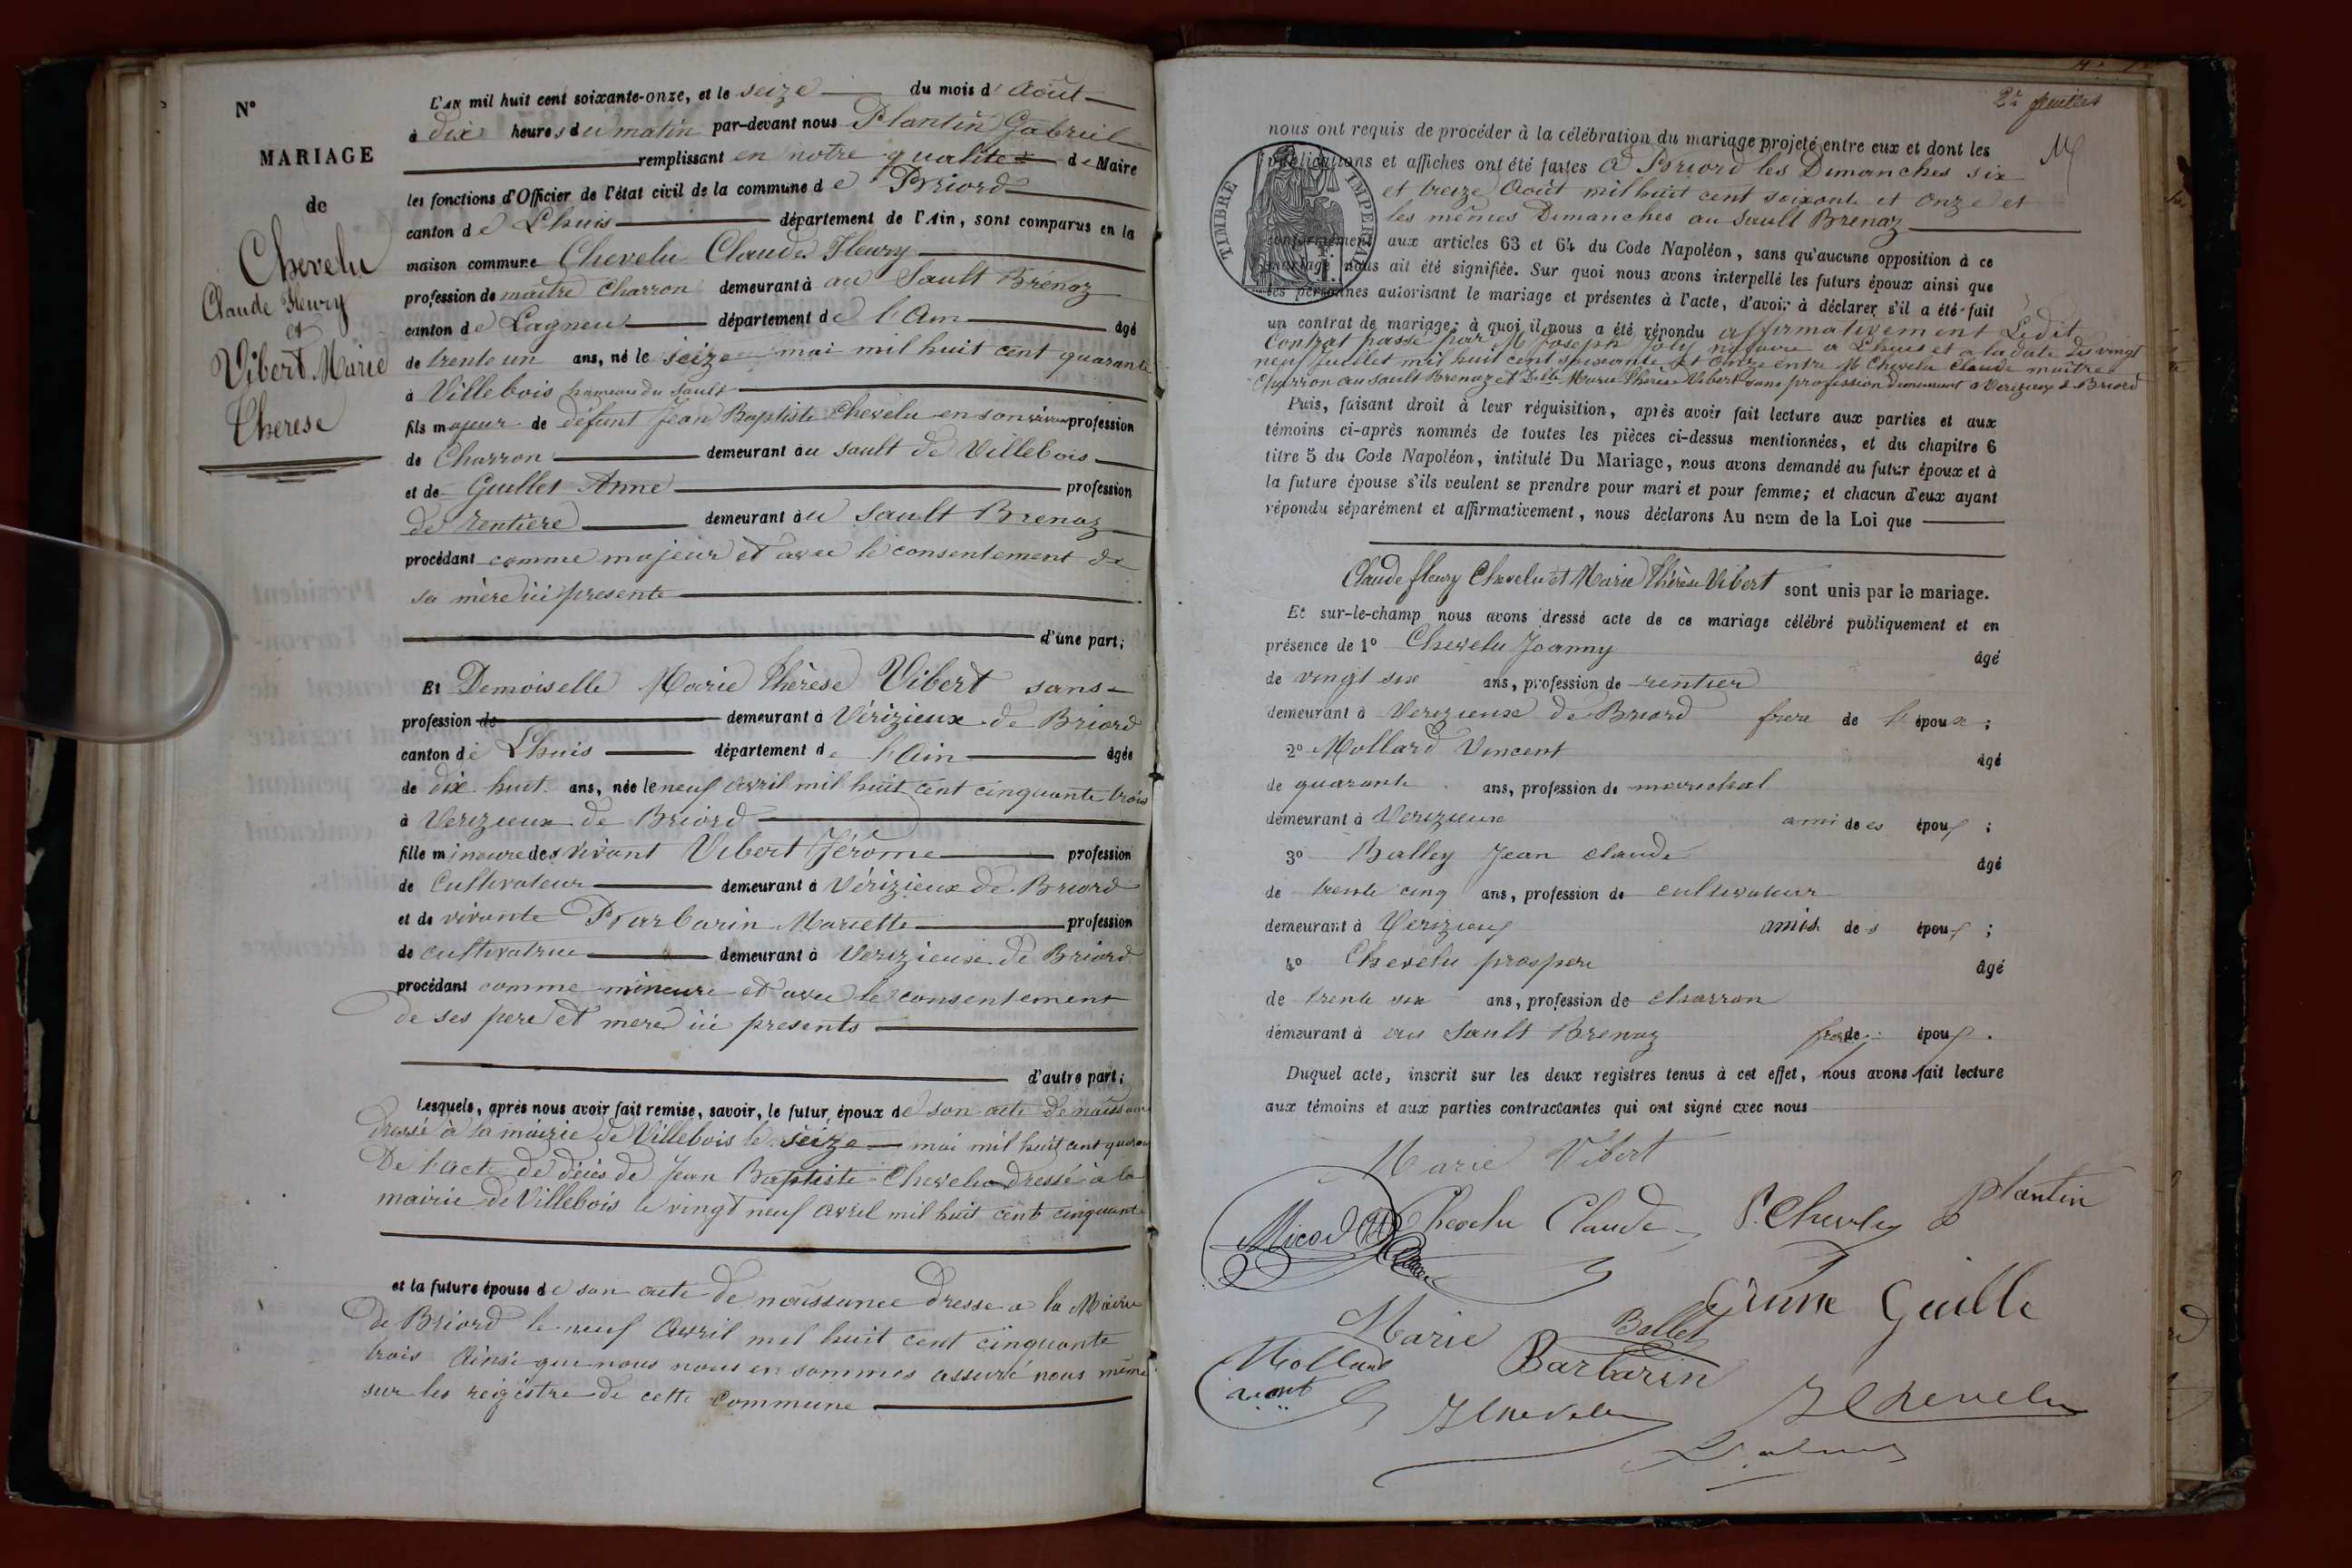 N°
MARIAGE
de
Chevelu
Claude Fleury
et
Vibert Marie
Therese
L'an mil huit cent soixante-onze, et le seize du mois d'Août
à dix heures du matin par-devant nous Plantin Gabriel
remplissant en notre qualité de Maire
les fonctions d'Officier de l'état civil de la commune de Briord
canton de Lhuis département de l'Ain, sont comparus en la
maison commune Chevelu Claude Fleury
profession de maître Charron demeurant à au Sault Brénaz
canton de Lagneu département de l'Ain âgé
de trente un ans, né le seize mai mil huit cent quarante
à Villebois hameau du Sault
fils majeur de défunt Jean Baptiste Chevelu en son vivant profession
de Charron demeurant au sault de Villebois
et de Guillet Anne profession
de rentière demeurant au Sault Brenaz
procédant comme majeur et avec le consentement de
sa mère ici presente
d'une part;
Et Demoiselle Marie Thérèse Vibert sans
profession de demeurant à Vérizieux de Briord
canton de Lhuis département de l'Ain âgée
de dix huit ans, née le neuf avril mil huit cent cinquante trois
à Verizieux de Briord
fille mineure des vivant Vibert Jérome profession
de Cultivateur demeurant à Vérizieux de Briord
et de vivante Barbarin Mariette profession
de cultivatrice demeurant à Verizieux de Briord
procédant comme mineure et avec le consentement
de ses pere et mere ici presents
d'autre part;
Lesquels, après nous avoir fait remise, savoir, le futur époux de son acte de naissance
dressé à la mairie de Villebois le seize mai mil huit cent quarante
De l'acte de décès de Jean Baptiste Chevelu dressé à la
mairie de Villebois le vingt neuf avril mil huit cent cinquante
et la future épouse de son acte de naissance dressé a la Mairie
de Briord le neuf Avril mil huit cent cinquante
trois Ainsi que nous nous en sommes assuré nous même
sur les régistre de cette commune
2e feuillet
nous ont requis de procéder à la célébration du mariage projeté entre eux et dont les
publications et affiches ont été faites à Briord les Dimanches six
et treize Août mil huit cent soixante et onze et
les mêmes Dimanches au Sault Brenaz
TIMBRE IMPERIAL
conformément aux articles 63 et 64 du Code Napoléon, sans qu'aucune opposition à ce
mariage nous ait été signifiée. Sur quoi nous avons interpellé les futurs époux ainsi que
les personnes autorisant le mariage et présentes à l'acte, d'avoir à déclarer s'il a été fait
un contrat de mariage; à quoi il nous a été répondu affirmativement Ledit
Contrat passé par Me Joseph Joly notaire a Lhuis et a la date des vingt
neuf Juillet mil huit cent soixante et onze entre Mr Chevelu Claude maitre
Charron au Sault Brenaz et Delle Marie Thérèse Vibert sans profession demeurant à Verizieux de Briord
Puis, faisant droit à leur réquisition, après avoir fait lecture aux parties et aux
témoins ci-après nommés de toutes les pièces ci-dessus mentionnées, et du chapitre 6
titre 5 du Code Napoléon, intitulé Du Mariage, nous avons demandé au futur époux et à
la future épouse s'ils veulent se prendre pour mari et pour femme; et chacun d'eux ayant
répondu séparément et affirmativement, nous déclarons Au nom de la Loi que
Claude fleury Chevelu et Marie Thérèse Vibert sont unis par le mariage.
Et sur-le-champ nous avons dressé acte de ce mariage célébré publiquement et en
présence de 1° Chevelu Joanny âgé
de vingt six ans, profession de rentier
demeurant à Verizieux de Briord frere de l'époux;
2° Mollard Vincent âgé
de quarante ans, profession de marechal
demeurant à Verizieux ami des époux;
3° Balley Jean claude âgé
de trente cinq ans, profession de cultivateur
demeurant à Verizieux amis des époux;
4° Chevelu prospere âgé
de trente six ans, profession de charron
demeurant à au Sault Brenaz frere de époux.
Duquel acte, inscrit sur les deux registres tenus à cet effet, nous avons fait lecture
aux témoins et aux parties contractantes qui ont signé avec nous
Marie Vibert
Chevelu Claude P. Chevelu Plantin
Anne Guille
Marie Ballet
Mollard Barbarin
J Chevelu J Chevelu